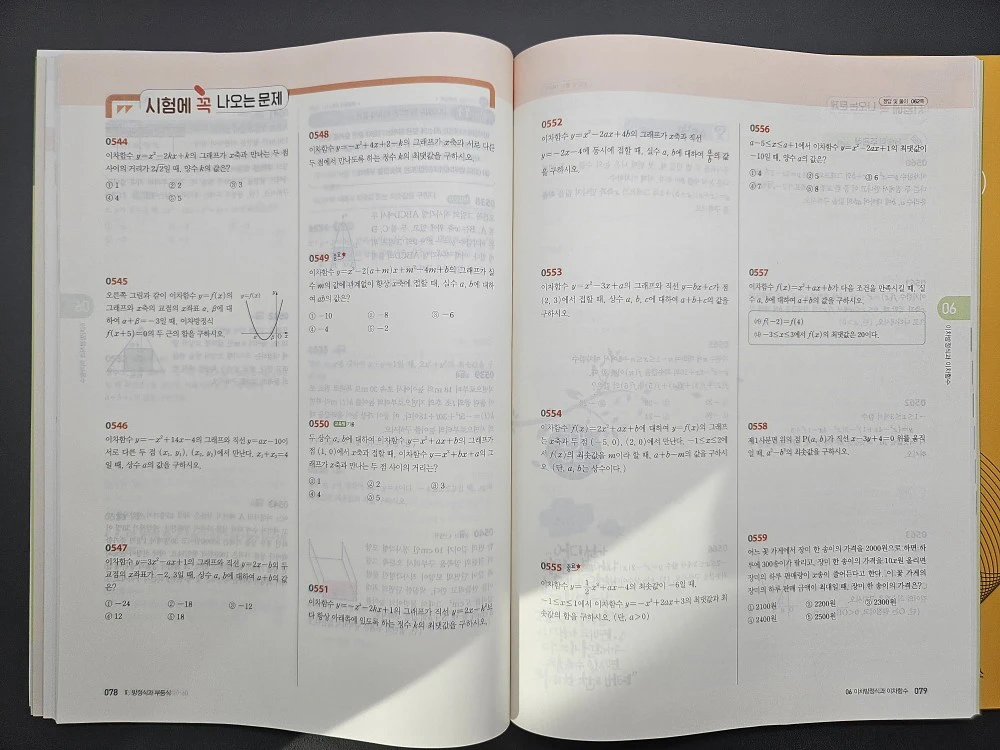 시험에 꼭 나오는 문제
0544
이차함수 y=x²-2kx+k의 그래프가 x축과 만나는 두 점
사이의 거리가 2√2일 때, 양수 k의 값은?
① 1 ② 2 ③ 3
④ 4 ⑤ 5
0545
오른쪽 그림과 같이 이차함수 y=f(x)의
그래프와 x축의 교점의 x좌표 α, β에 대
하여 α+β=-3일 때, 이차방정식
f(x+5)=0의 두 근의 합을 구하시오.
y=f(x)
0546
이차함수 y=-x²+14x-4의 그래프와 직선 y=ax-10이
서로 다른 두 점 (x₁, y₁), (x₂, y₂)에서 만난다. x₁+x₂=4
일 때, 상수 a의 값을 구하시오.
0547
이차함수 y=3x²-ax+1의 그래프와 직선 y=2x-b의 두
교점의 x좌표가 -2, 3일 때, 상수 a, b에 대하여 a+b의 값
은?
① -24 ② -18 ③ -12
④ 12 ⑤ 18
078 Ⅱ. 방정식과 부등식
0548
이차함수 y=-x²+4x+2-k의 그래프가 x축과 서로 다른
두 점에서 만나도록 하는 정수 k의 최댓값을 구하시오.
0549 중요
이차함수 y=x²-2(a+m)x+m²-4m+b의 그래프가 실
수 m의 값에 관계없이 항상 x축에 접할 때, 실수 a, b에 대하
여 ab의 값은?
① -10 ② -8 ③ -6
④ -4 ⑤ -2
0550
두 상수 a, b에 대하여 이차함수 y=x²+ax+b의 그래프가
점 (1, 0)에서 x축과 접할 때, 이차함수 y=x²+bx+a의 그
래프가 x축과 만나는 두 점 사이의 거리는?
① 1 ② 2 ③ 3
④ 4 ⑤ 5
0551
이차함수 y=-x²-2kx+1의 그래프가 직선 y=2x-k²보
다 항상 아래쪽에 있도록 하는 정수 k의 최댓값을 구하시오.
0552
이차함수 y=x²-2ax+4b의 그래프가 x축과 직선
y=-2x-4에 동시에 접할 때, 실수 a, b에 대하여 a/b의 값
을 구하시오.
0553
이차함수 y=x²-3x+a의 그래프와 직선 y=bx+c가 점
(2, 3)에서 접할 때, 상수 a, b, c에 대하여 a+b+c의 값을
구하시오.
0554
이차함수 f(x)=2x²+ax+b에 대하여 y=f(x)의 그래프
는 x축과 두 점 (-5, 0), (2, 0)에서 만난다. -1≤x≤2에
서 f(x)의 최솟값을 m이라 할 때, a+b-m의 값을 구하시
오. (단, a, b는 상수이다.)
0555 중요
이차함수 y=½x²+ax-4의 최솟값이 -6일 때,
-1≤x≤1에서 이차함수 y=-x²+2ax+3의 최댓값과 최
솟값의 합을 구하시오. (단, a>0)
정답 및 풀이 062쪽
0556
a-5≤x≤a+1에서 이차함수 y=x²-2ax+1의 최댓값이
-10일 때, 양수 a의 값은?
① 4 ② 5 ③ 6
④ 7 ⑤ 8
0557
이차함수 f(x)=x²+ax+b가 다음 조건을 만족시킬 때, 실
수 a, b에 대하여 a+b의 값을 구하시오.
㈎ f(-2)=f(4)
㈏ -3≤x≤3에서 f(x)의 최댓값은 20이다.
0558
제1사분면 위의 점 P(a, b)가 직선 x-3y+4=0 위를 움직
일 때, a²-b²의 최솟값을 구하시오.
0559
어느 꽃 가게에서 장미 한 송이의 가격을 2000원으로 하면 하
루에 300송이가 팔리고, 장미 한 송이의 가격을 10x원 올리면
장미의 하루 판매량이 x송이 줄어든다고 한다. 이 꽃 가게의
장미의 하루 판매 금액이 최대일 때, 장미 한 송이의 가격은?
① 2100원 ② 2200원 ③ 2300원
④ 2400원 ⑤ 2500원
06
이차방정식과 이차함수
06 이차방정식과 이차함수 079